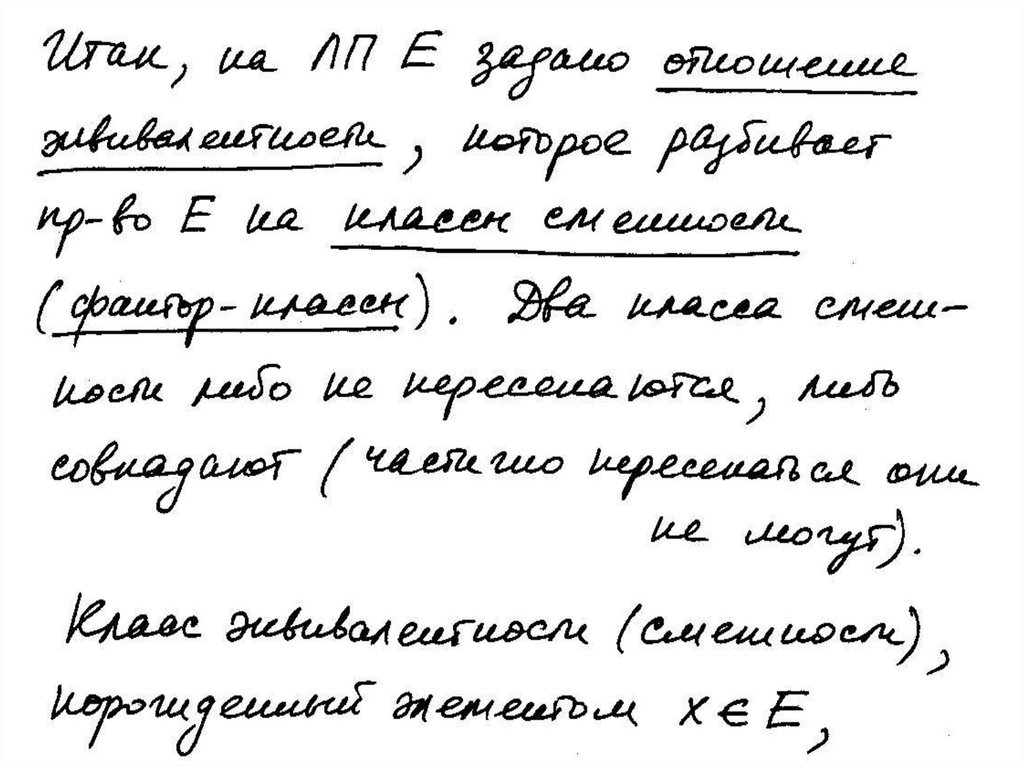 Итак, на ЛП E задано отношение
эквивалентности, которое разбивает
пр-во E на классы смежности
(фактор-классы). Два класса смеж-
ности либо не пересекаются, либо
совпадают (частично пересекаться они
не могут).
Класс эквивалентности (смежности),
порожденный элементом x ∈ E,